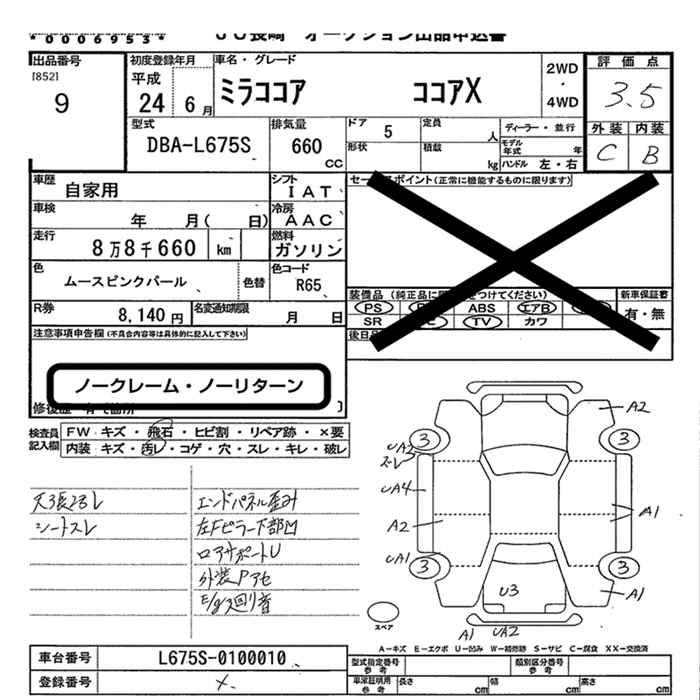 *0006953*
JU長崎 オークション出品申込書
出品番号
[852]
9
初度登録年月
平成
24 6 月
車名・グレード
ミラココア ココアX
2WD
・
4WD
評価点
3.5
外装 内装
C B
型式
DBA-L675S
排気量
660
cc
ドア 5
定員 人
形状
積載 kg
ディーラー・並行
モデル年式 年
ハンドル 左・右
車歴 自家用
シフト IAT
車検 年 月( 日)
冷房 AAC
走行 8万8千660 km
燃料 ガソリン
色 ムースピンクパール
色替
色コード R65
R券 8,140円
名変通知期限 月 日
セールスポイント(正常に機能するものに限ります)
装備品
PS ABS エアB
SR TV カワ
新車保証書
有・無
後日
注意事項申告欄 (不具合内容等は具体的に記入して下さい)
ノークレーム・ノーリターン
修復歴 有
検査員記入欄
FW キズ・飛石・ヒビ割・リペア跡・×要
内装 キズ・汚レ・コゲ・穴・スレ・キレ・破レ
シートスレ
エンドパネル歪み
左Fピラー下部凹
ロアサポートU
外装Pアセ
E/g廻り音
A2
3 3
UA2
スレ
UA4
A2
A1
UA1
3 3
A1
U3
スペア
A1 UA2
A-キズ E-エクボ U-凹み W-補修跡 S-サビ C-腐食 XX-交換済
車台番号 L675S-0100010
登録番号 ×
型式指定番号 参考
類別区分番号 参考
車家証明用 参考
長さ cm 幅 cm 高さ cm